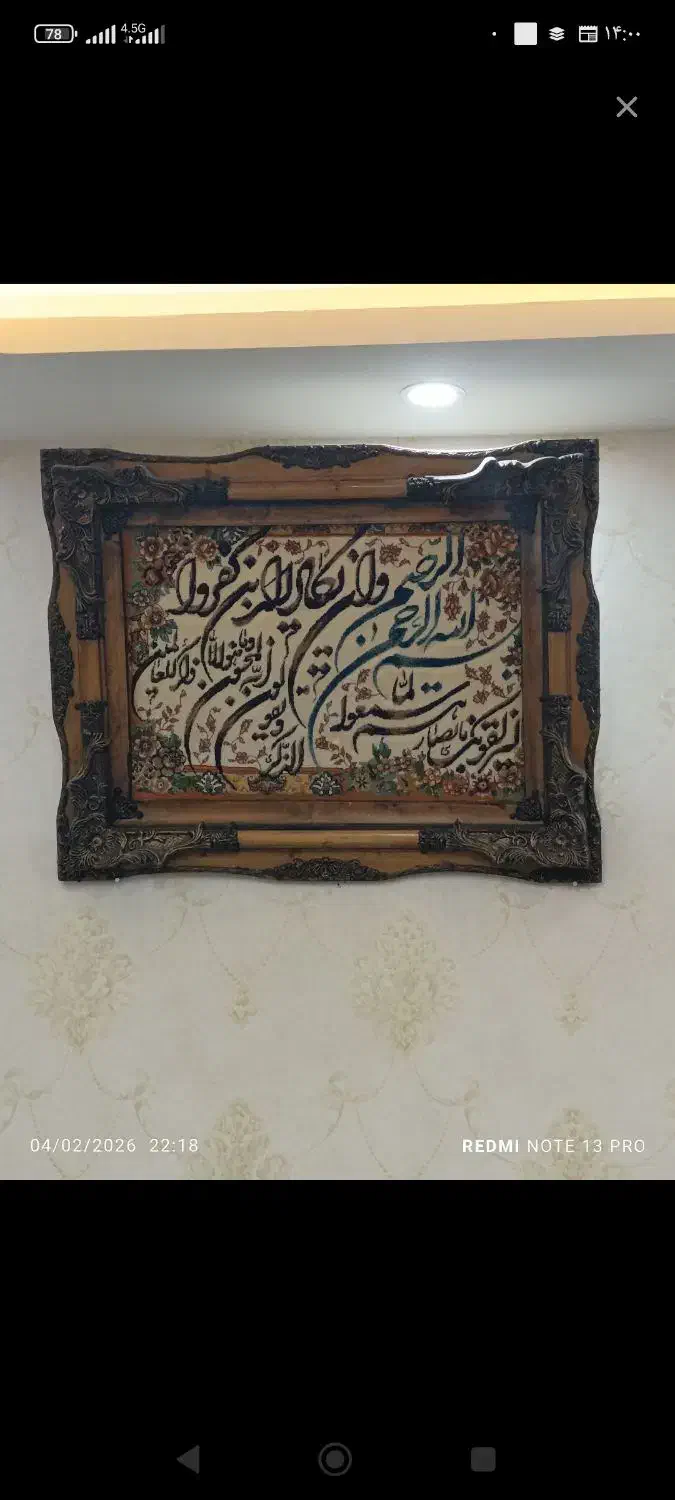 78
4.5G
۱۴:۰۰
بسم الله الرحمن الرحيم
وان يكاد الذين كفروا
ليزلقونك بابصارهم
لما سمعوا الذكر
ويقولون انه لمجنون
وما هو الا ذكر للعالمين
04/02/2026 22:18
REDMI NOTE 13 PRO